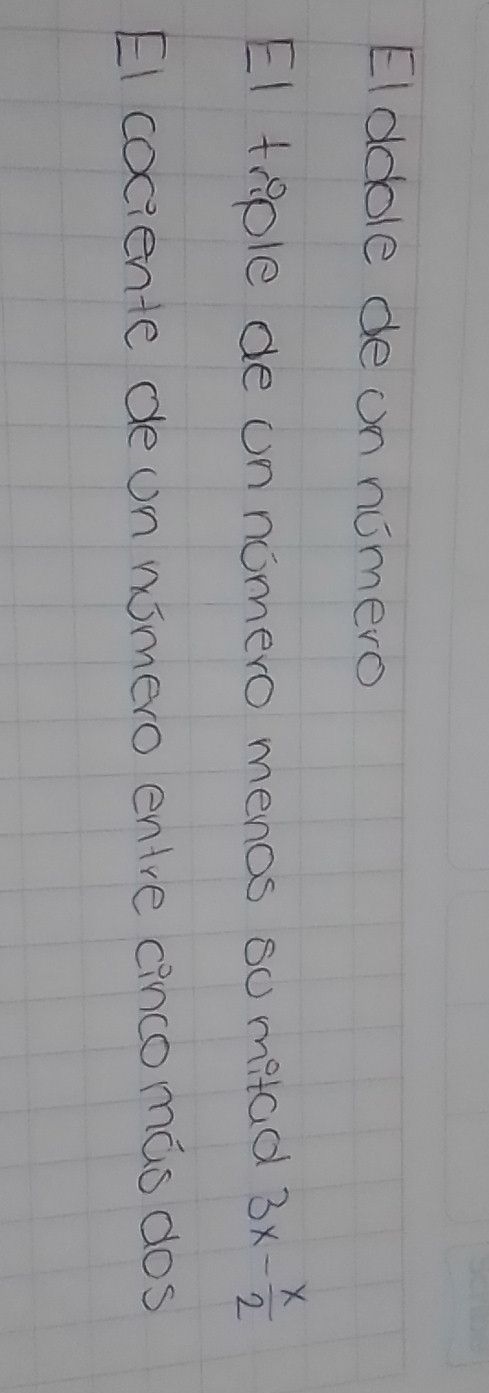 El doble de un número
El triple de un número menos su mitad 3x - x/2
El cociente de un número entre cinco más dos